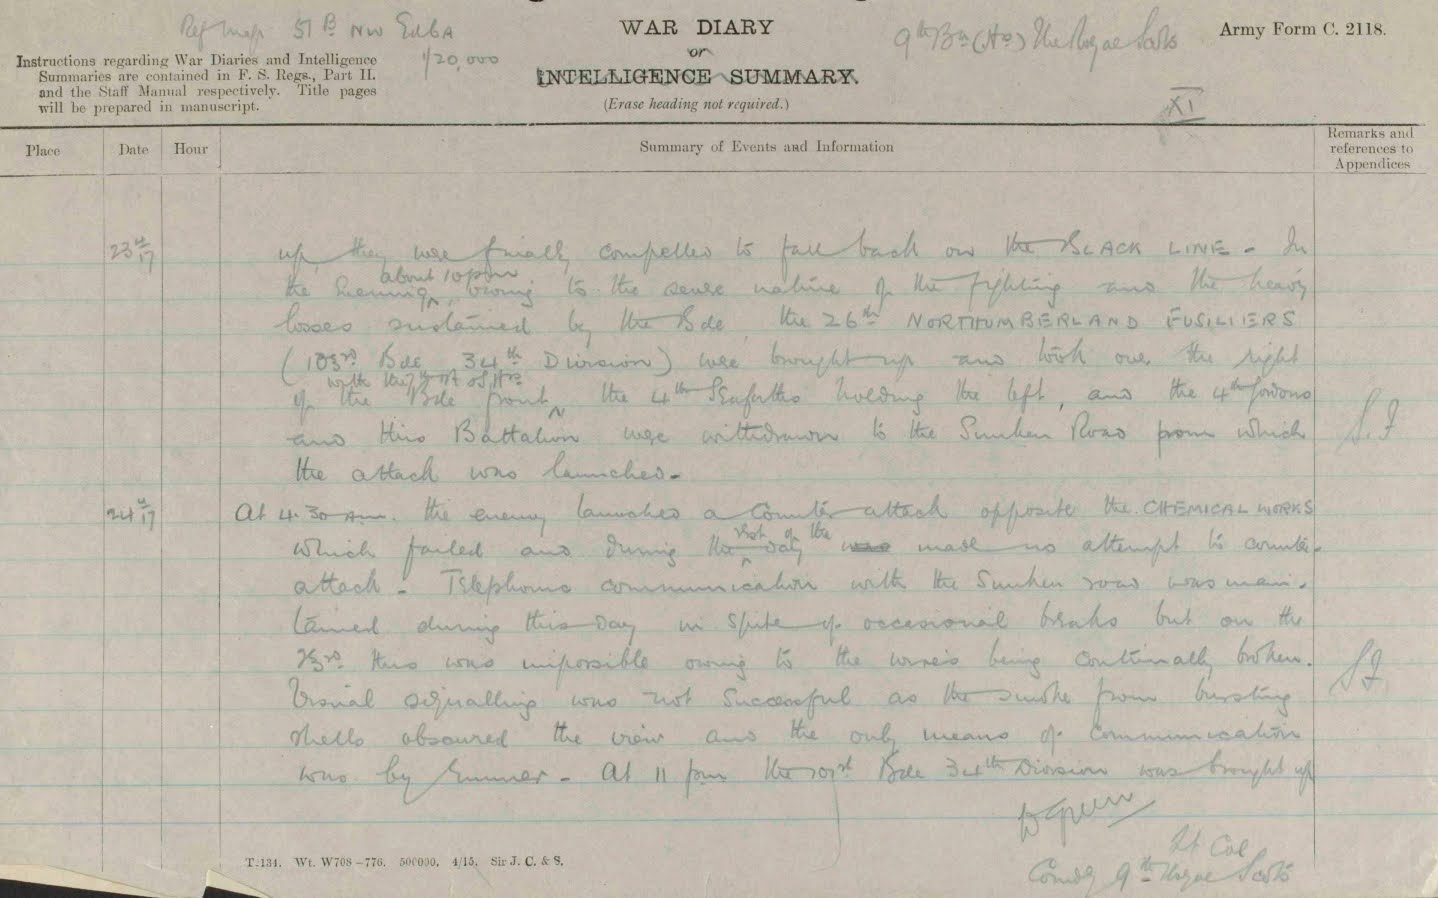 Ref Map 51 B NW Ed 6A
1/20,000
WAR DIARY
or
INTELLIGENCE SUMMARY.
(Erase heading not required.)
9th Bn (Hrs) The Royal Scots
Army Form C. 2118.
Instructions regarding War Diaries and Intelligence
Summaries are contained in F. S. Regs., Part II.
and the Staff Manual respectively. Title pages
will be prepared in manuscript.
XI
Place
Date
Hour
Summary of Events and Information
Remarks and
references to
Appendices
23/4/17
up, they were finally compelled to fall back on the BLACK LINE - In
the Evening about 10 pm, owing to the severe nature of the fighting and the heavy
losses sustained by the Bde the 26th NORTHUMBERLAND FUSILIERS
(103rd Bde 34th Division) were brought up and took over the right
of the Bde front with the of the 4th Seaforths holding the left, and the 4th Gordons
and this Battalion were withdrawn to the Sunken Road from which
the attack was launched -
S.F
24/4/17
At 4.30 am. the enemy launched a Counter attack opposite the CHEMICAL WORKS
which failed and during the rest of the day was made no attempt to counter-
attack - Telephone communication with the Sunken road was main-
tained during this day in spite of occasional breaks but on the
23rd this was impossible owing to the wires being continually broken.
Visual signalling was not successful as the smoke from bursting
shells obscured the view and the only means of communication
was by runner - At 11 pm the 101st Bde 34th Division was brought up
SF
Lt Col
Comdg 9th Royal Scots
T.134. Wt. W708-776. 500000. 4/15. Sir J. C. & S.